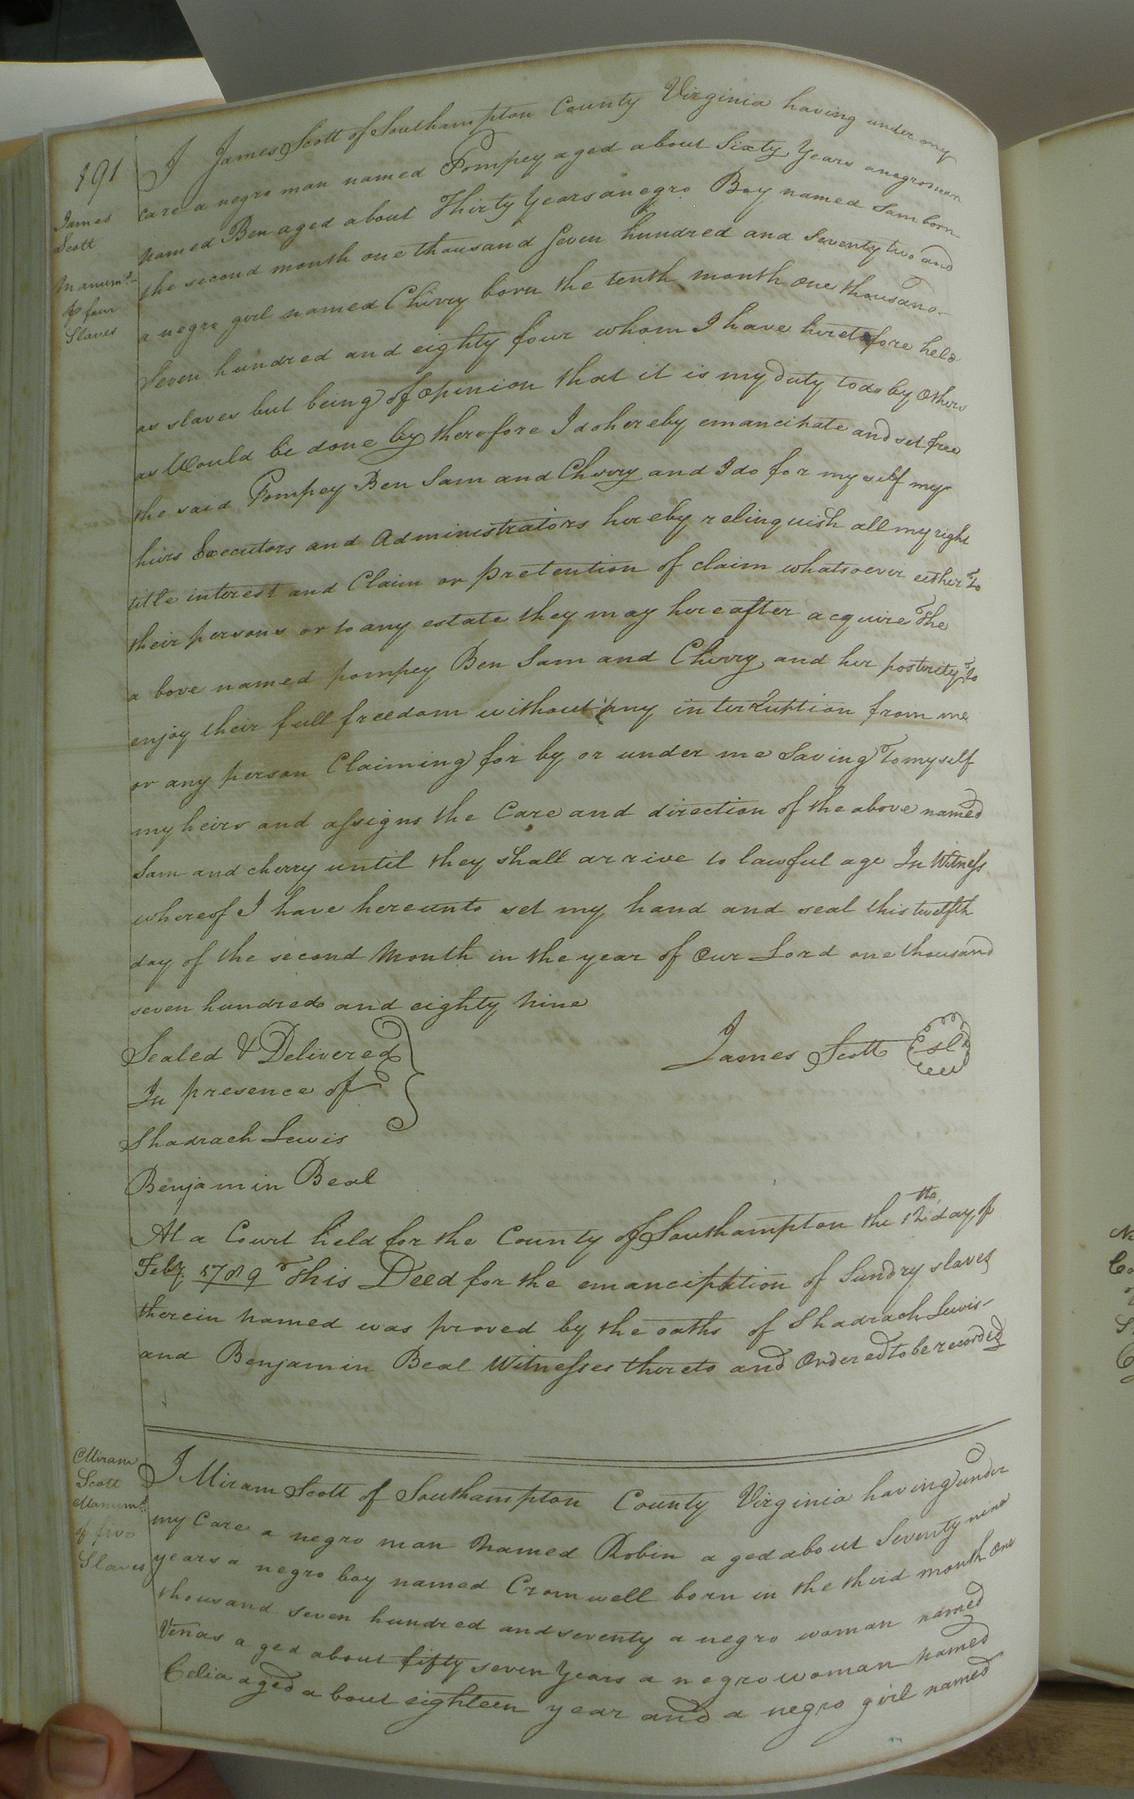 191
James
Scott
Manumt.
to four
Slaves
I James Scott of Southampton County Virginia having under my
care a negro man named Pompey aged about Sixty Years a negro man
named Ben aged about Thirty Years a negro Boy named Sam born
the second month one thousand Seven hundred and Seventy two and
a negro girl named Chirry born the tenth month one thousand
Seven hundred and eighty four whom I have heretofore held
as slaves but being of opinion that it is my duty to do by others
as Would be done by therefore I do hereby emancipate and set free
the said Pompey Ben Sam and Chirry and I do for my self my
heirs Executors and Administrators hereby relinquish all my right
title interest and Claim or pretention of claim whatsoever either to
their persons or to any estate they may hereafter acquire The
a bove named pompey Ben Sam and Chirry and her posterity to
enjoy their full freedom without any interruption from me
or any person Claiming for by or under me Saving To myself
my heirs and assigns the Care and direction of the above named
Sam and cherry until they shall arrive to lawful age In Witness
whereof I have hereunto set my hand and seal this twelfth
day of the second Month in the year of Our Lord one thousand
seven hundred and eighty Nine
Sealed & Delivered
James Scott Seal
In presence of
Shadrach Lewis
Benjamin Beal
At a Court held for the County of Southampton the 12th day of
Feby. 1789 This Deed for the emanciption of Sundry slaves
therein Named was proved by the oaths of Shadrach Lewis
and Benjamin Beal Witnesses thereto and Ordered to be recorded
Miram
Scott
Manumt.
of five
Slaves
I Miram Scott of Southampton County Virginia having under
my Care a negro man Named Robin aged about Seventy nine
years a negro boy named Cromwell born in the third month One
thousand seven hundred and seventy a negro woman named
Venas aged about fifty seven Years a negro woman Named
Celia aged a bout eighteen year and a negro girl named